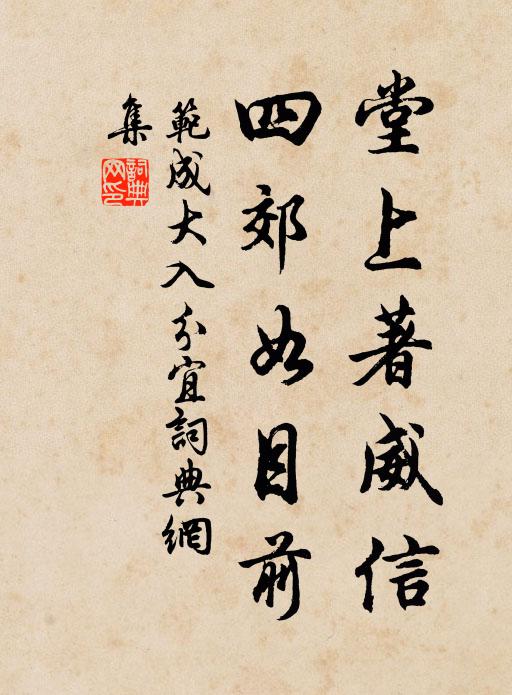 堂上著威信
四郊如目前
範成大入分宜詞典網
集
詞典網印